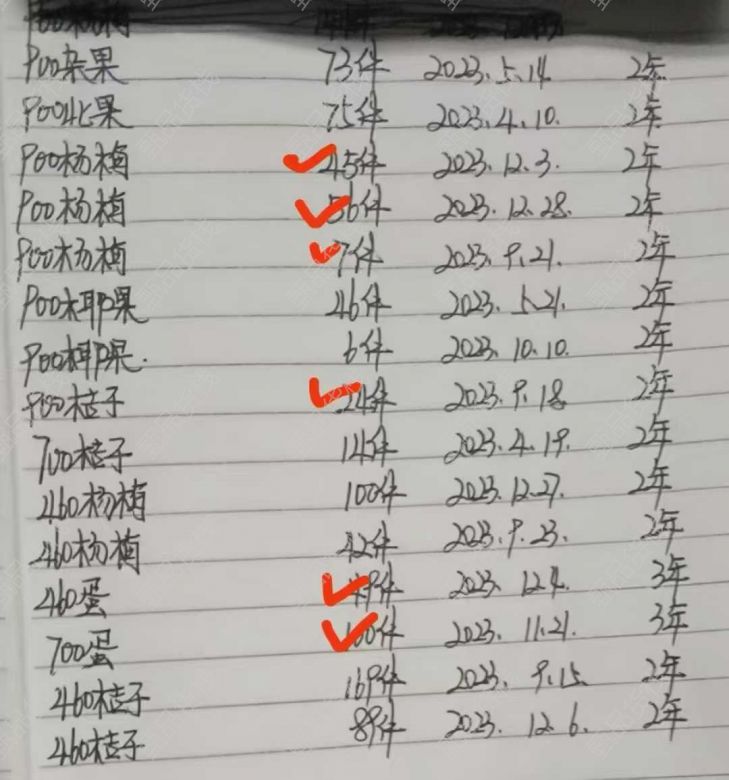 900杂果 73件 2023.5.14 2年
900北果 75件 2023.4.10. 2年
900杨梅 45件 2023.12.3. 2年
900杨梅 56件 2023.12.28. 2年
900杨梅 7件 2023.9.21. 2年
900椰果 46件 2023.5.21. 2年
900椰果. 6件 2023.10.10. 2年
900桔子 24件 2023.9.18 2年
700桔子 14件 2023.4.19. 2年
460杨梅 100件 2023.12.27. 2年
460杨梅 42件 2023.9.23. 2年
460蛋 49件 2023.12.4. 3年
700蛋 100件 2023.11.21. 3年
460桔子 169件 2023.9.15. 2年
460桔子 89件 2023.12.6. 2年